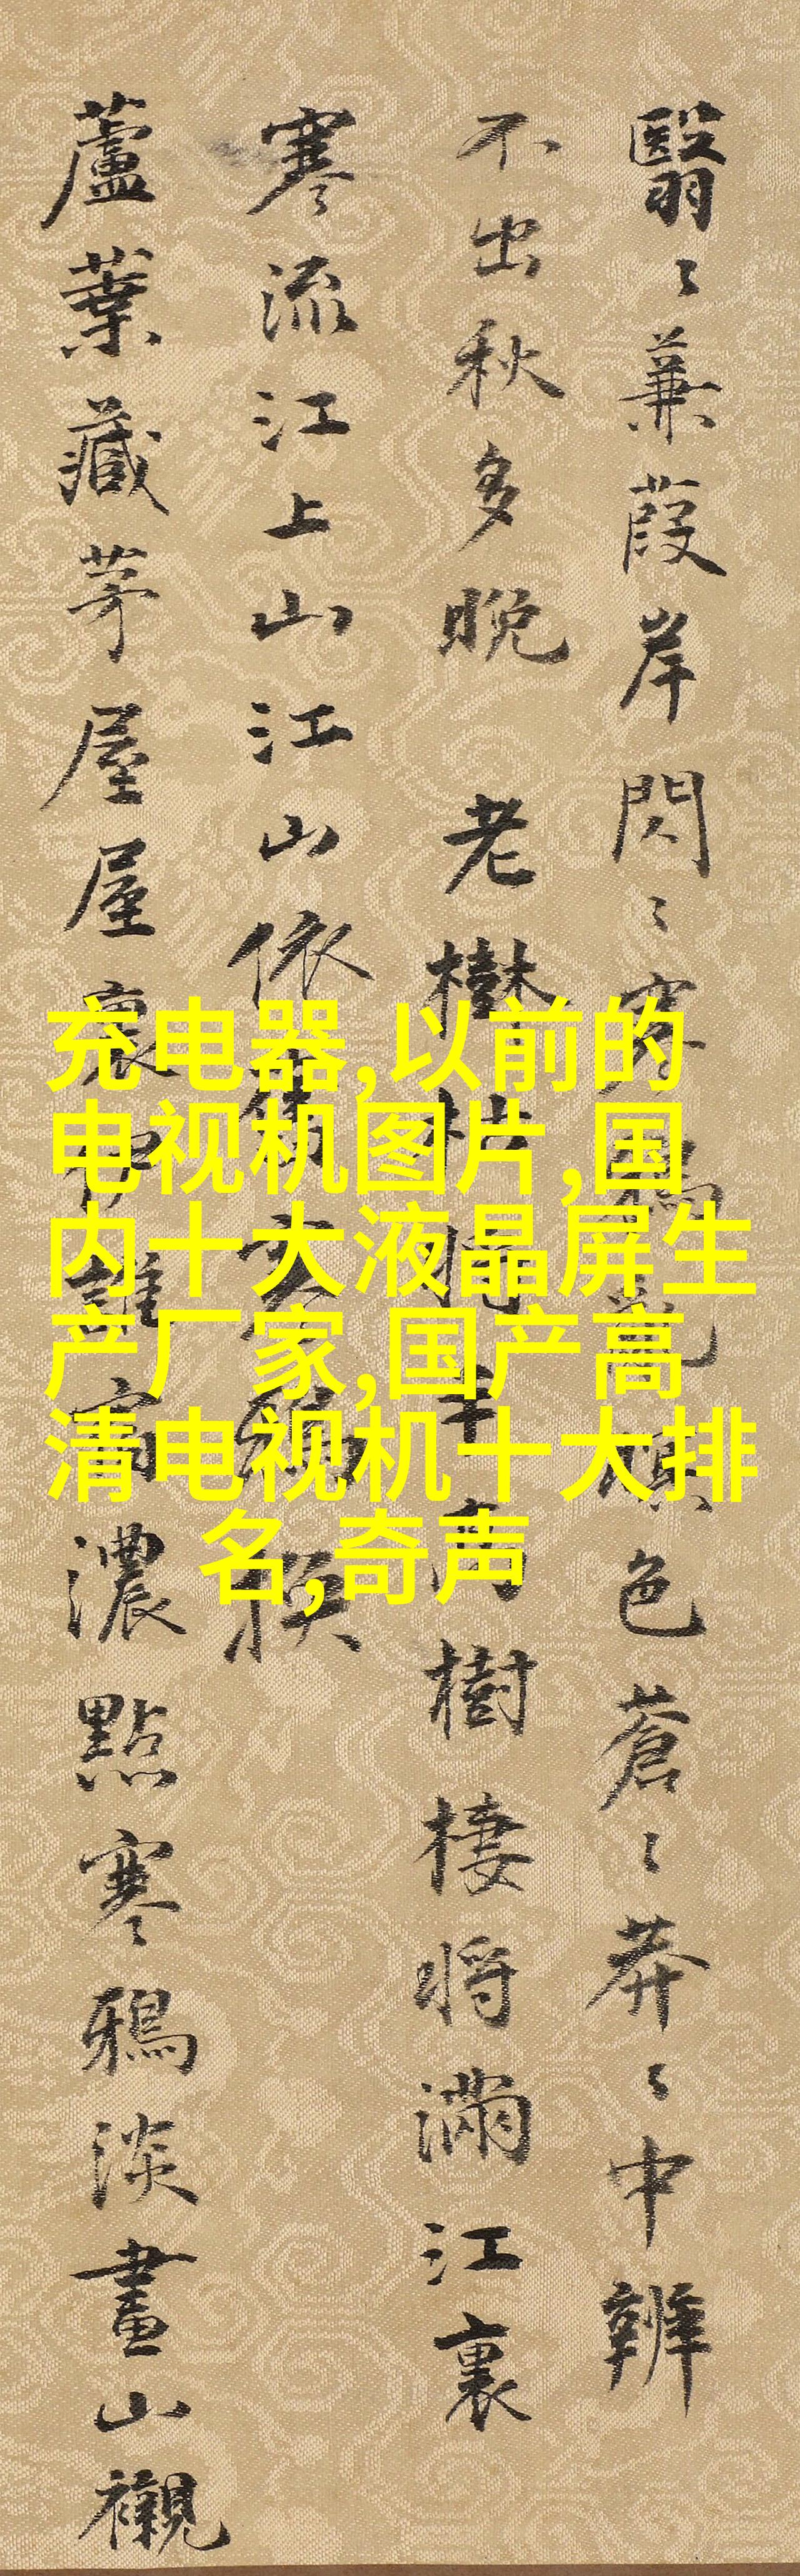 翳〻蒹葭岸閃〻鴉亂暝色蒼〻莽〻中辨
不出秋多晚 老樹枯將半高樹棲將滿江裏
寒流江上山江山依舊
蘆葉藏茅屋屋裏伊誰宿濃點寒鴉淡畫山襯
充电器,以前的
电视机图片,国
内十大液晶屏生
产厂家,国产高
清电视机十大排
名,奇声